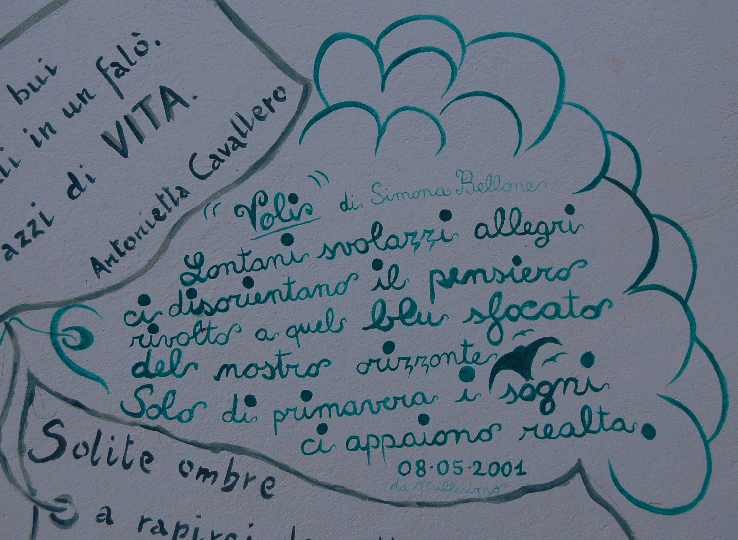 bui
in un falò.
azzi di VITA.
Antonietta Cavallero
"Volis" di Simona Bellone
Lontani svolazzi allegri
ci disorientano il pensiero
rivolto a quel blu sfocato
del nostro orizzonte
Solo di primavera i sogni
ci appaiono realtà.
08.05.2001
da Millesimo
Solite ombre
a rapirci